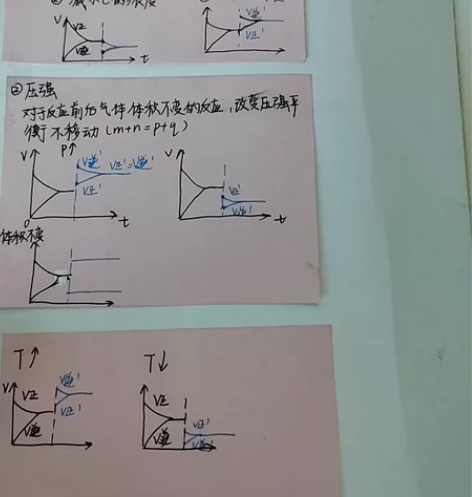 ② 减小C的浓度
V
V正
V逆
t
V正'
②压强
对于反应前后气体体积不变的反应,改变压强平
衡不移动(m+n=p+q)
V P↑ V逆' V正'=V逆' V正' 0 t
V V正' V逆' t
体积不变
T↑ T↓
V V正 V逆 V逆' V正'
V正 V逆 V正' V逆'